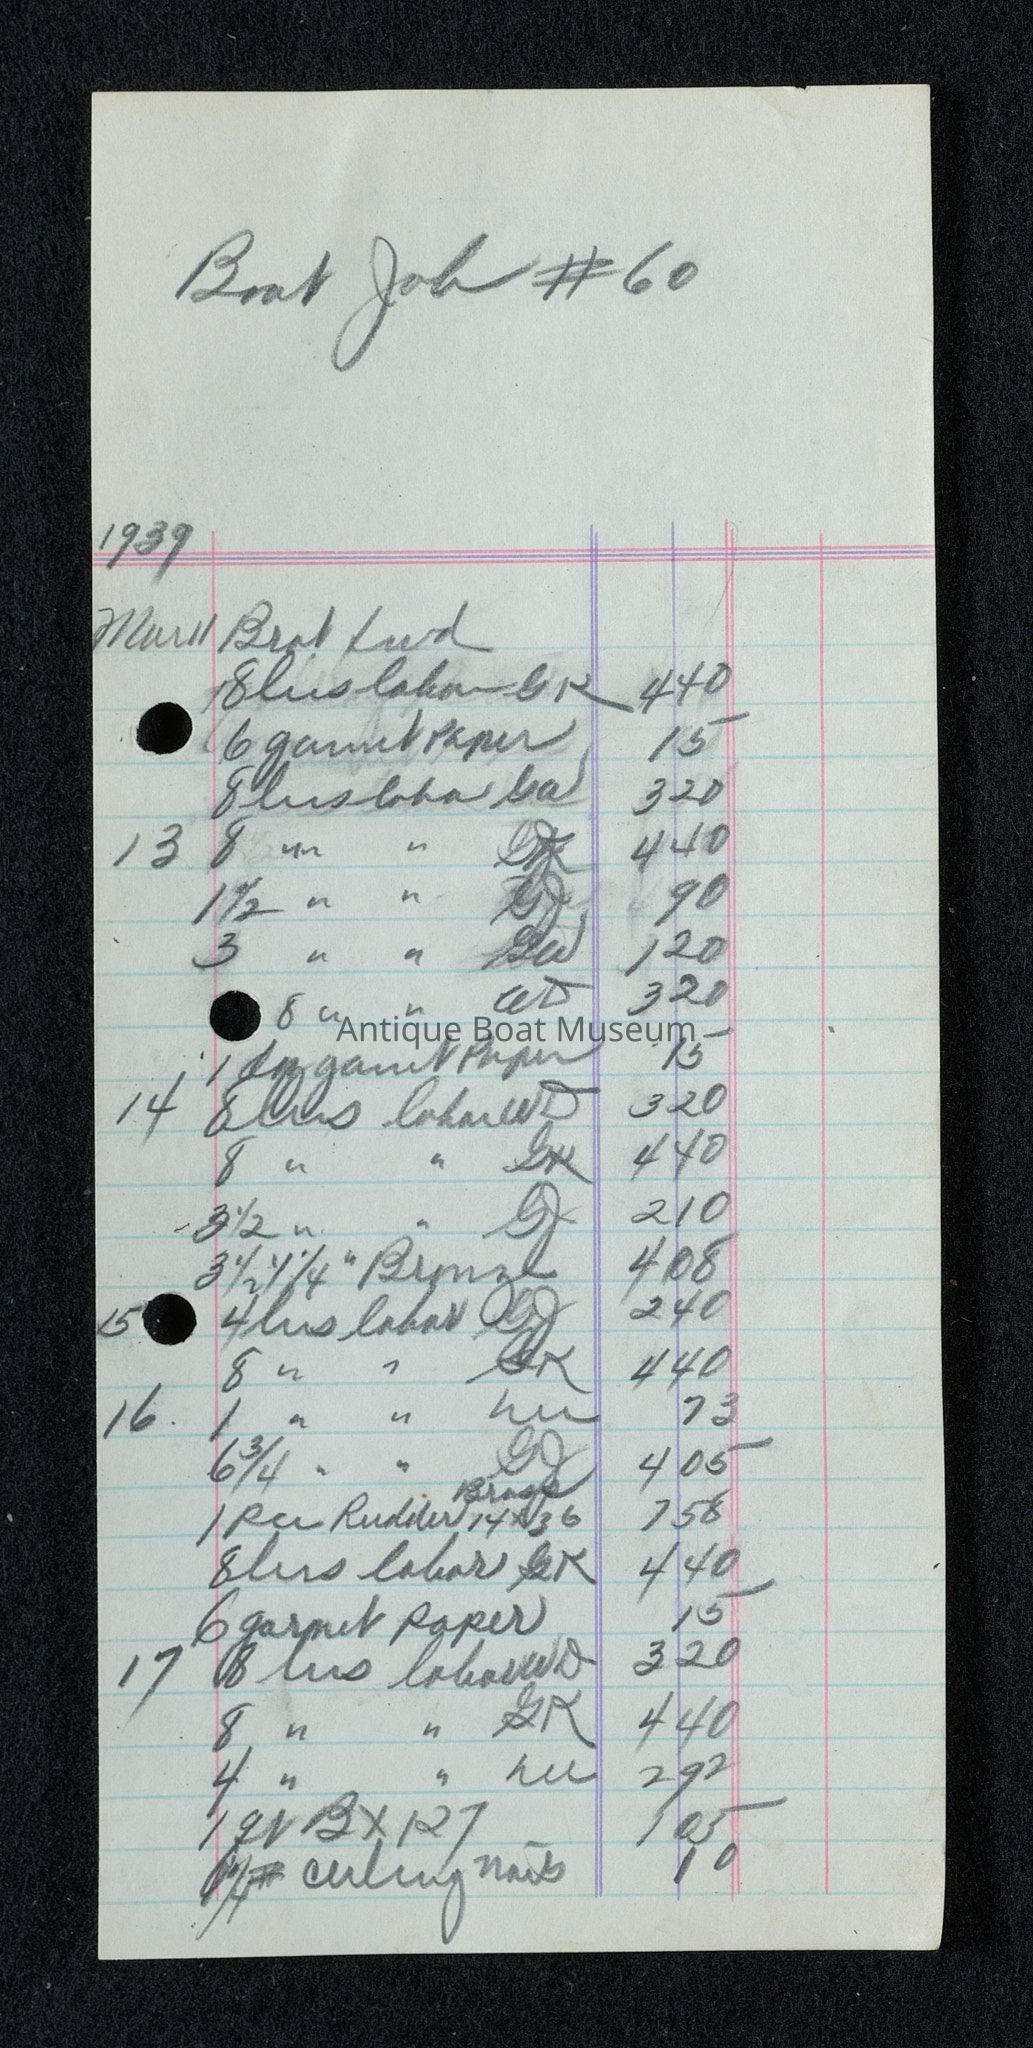 Boat Job #60
1939
Mar 11 Boat Fwd
8 hrs labor GK 440
6 garnet Paper 15
8 hrs labor GW 320
13 8 " " GK 440
1 1/2 " " GJ 90
3 " " GW 120
8 " " WD 320
Antique Boat Museum
1 garnet Paper 15
14 8 hrs labor WD 320
8 " " GK 440
3 1/2 " " GJ 210
3 1/2 1 1/4" Bronze 408
15 4 hrs labor GJ 240
8 " " GK 440
16 1 " " 73
6 3/4 " " GJ 405
Brass
1 Pce Rudder 14x36 758
8 hrs labor GK 440
6 garnet Paper 15
17 8 hrs labor WD 320
8 " " GK 440
4 " " 292
1 qt BX127 105
1/4# ceiling nails 10